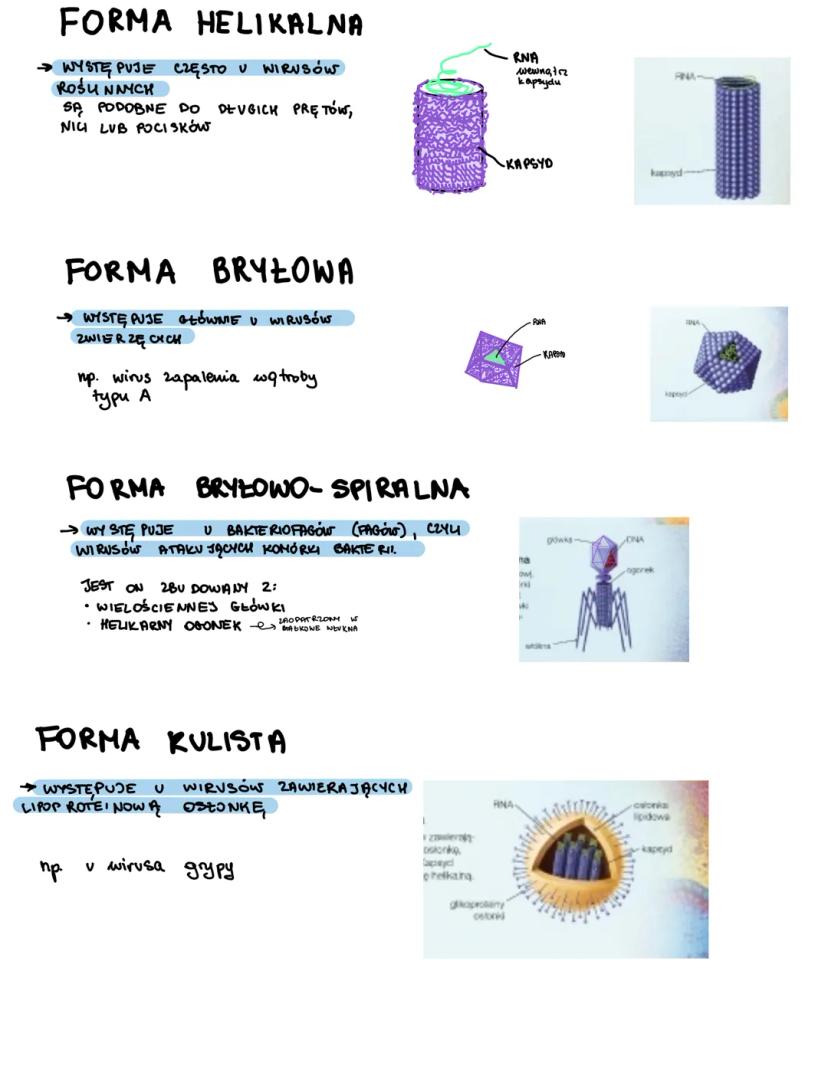 FORMA HELIKALNA
→ WYSTĘPUJE CZĘSTO U WIRUSÓW
ROŚLINNYCH
SĄ PODOBNE DO DŁUGICH PRĘTÓW,
NICI LUB POCISKÓW
RNA
wewnątrz
kapsydu
KAPSYD
RNA
kapsyd
FORMA BRYŁOWA
→ WYSTĘPUJE GŁÓWNIE U WIRUSÓW
ZWIERZĘCYCH
np. wirus zapalenia wątroby
typu A
RNA
KAPSYD
RNA
kapsyd
FORMA BRYŁOWO-SPIRALNA
→ WYSTĘPUJE U BAKTERIOFAGÓW (FAGÓW), CZYLI
WIRUSÓW ATAKUJĄCYCH KOMÓRKI BAKTERII.
JEST ON ZBUDOWANY Z:
• WIELOŚCIENNEJ GŁÓWKI
• HELIKARNY OGONEK → ZAOPATRZONY W
BIAŁKOWE WŁÓKNA
główka
DNA
ogonek
włókna
FORMA KULISTA
→ WYSTĘPUJE U WIRUSÓW ZAWIERAJĄCYCH
LIPOPROTEINOWĄ OSŁONKĘ
np. u wirusa grypy
RNA
osłonka
lipidowa
kapsyd
glikoproteiny
osłonki
zawierają-
osłonkę.
Kapsyd
helikalną.